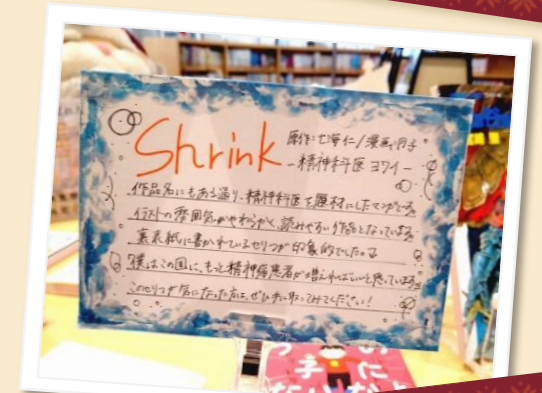 Shrink
原作:七海仁/漫画:月子
-精神科医ヨワイ-
作品名にもある通り、精神科医を題材にしたマンガである。
イラストの雰囲気がやわらかく、読みやすい作品となっている。
裏表紙に書かれているセリフが印象的でした。
僕はこの国に、もっと精神病患者が増えればいいと思っている
このセリフが気になった方は、ぜひ手に取ってみてください!